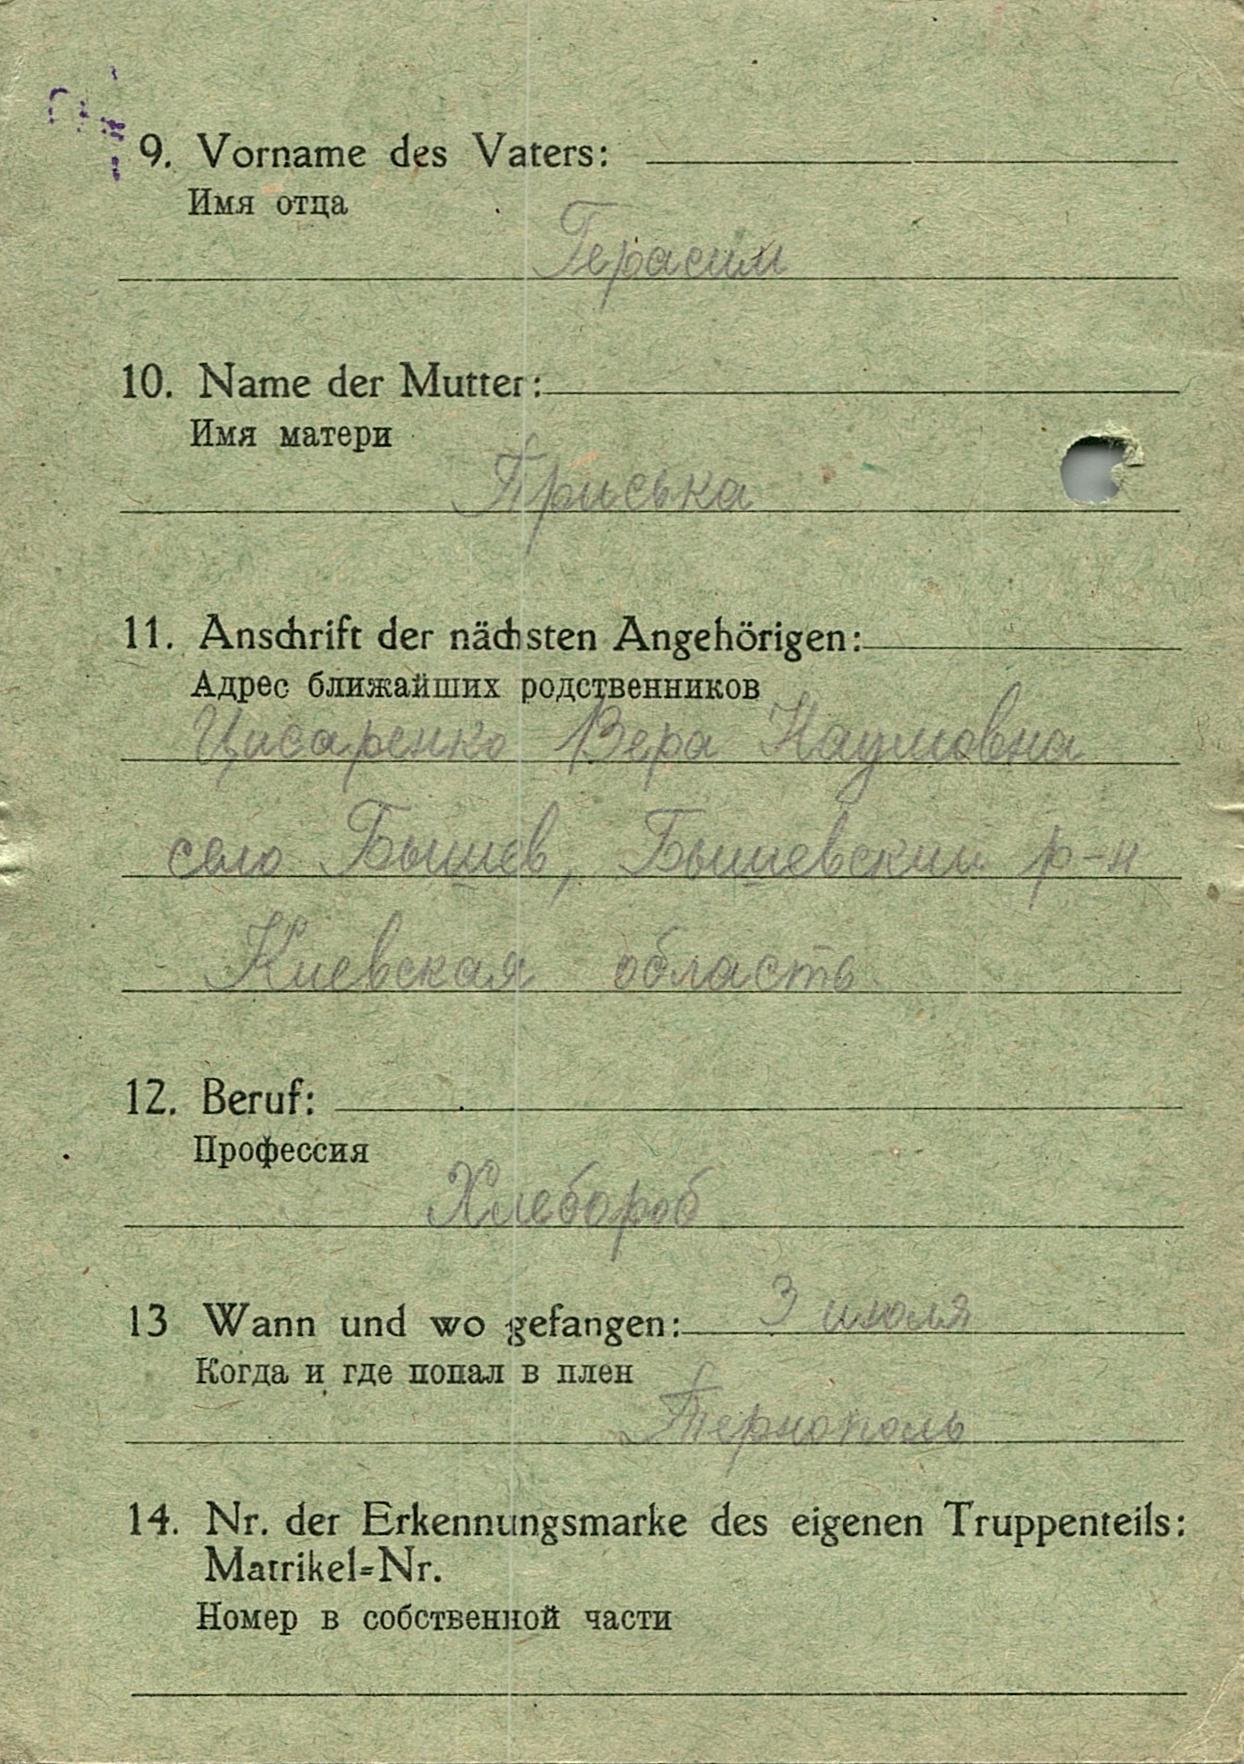 9. Vorname des Vaters:
Имя отца
Герасим
10. Name der Mutter:
Имя матери
Приська
11. Anschrift der nächsten Angehörigen:
Адрес ближайших родственников
Цисаренко Вера Наумовна
село Бышев, Бышевский р-н
Киевская область
12. Beruf:
Профессия
Хлебороб
13 Wann und wo gefangen: 3 июля
Когда и где попал в плен
Тернополь
14. Nr. der Erkennungsmarke des eigenen Truppenteils:
Matrikel-Nr.
Номер в собственной части